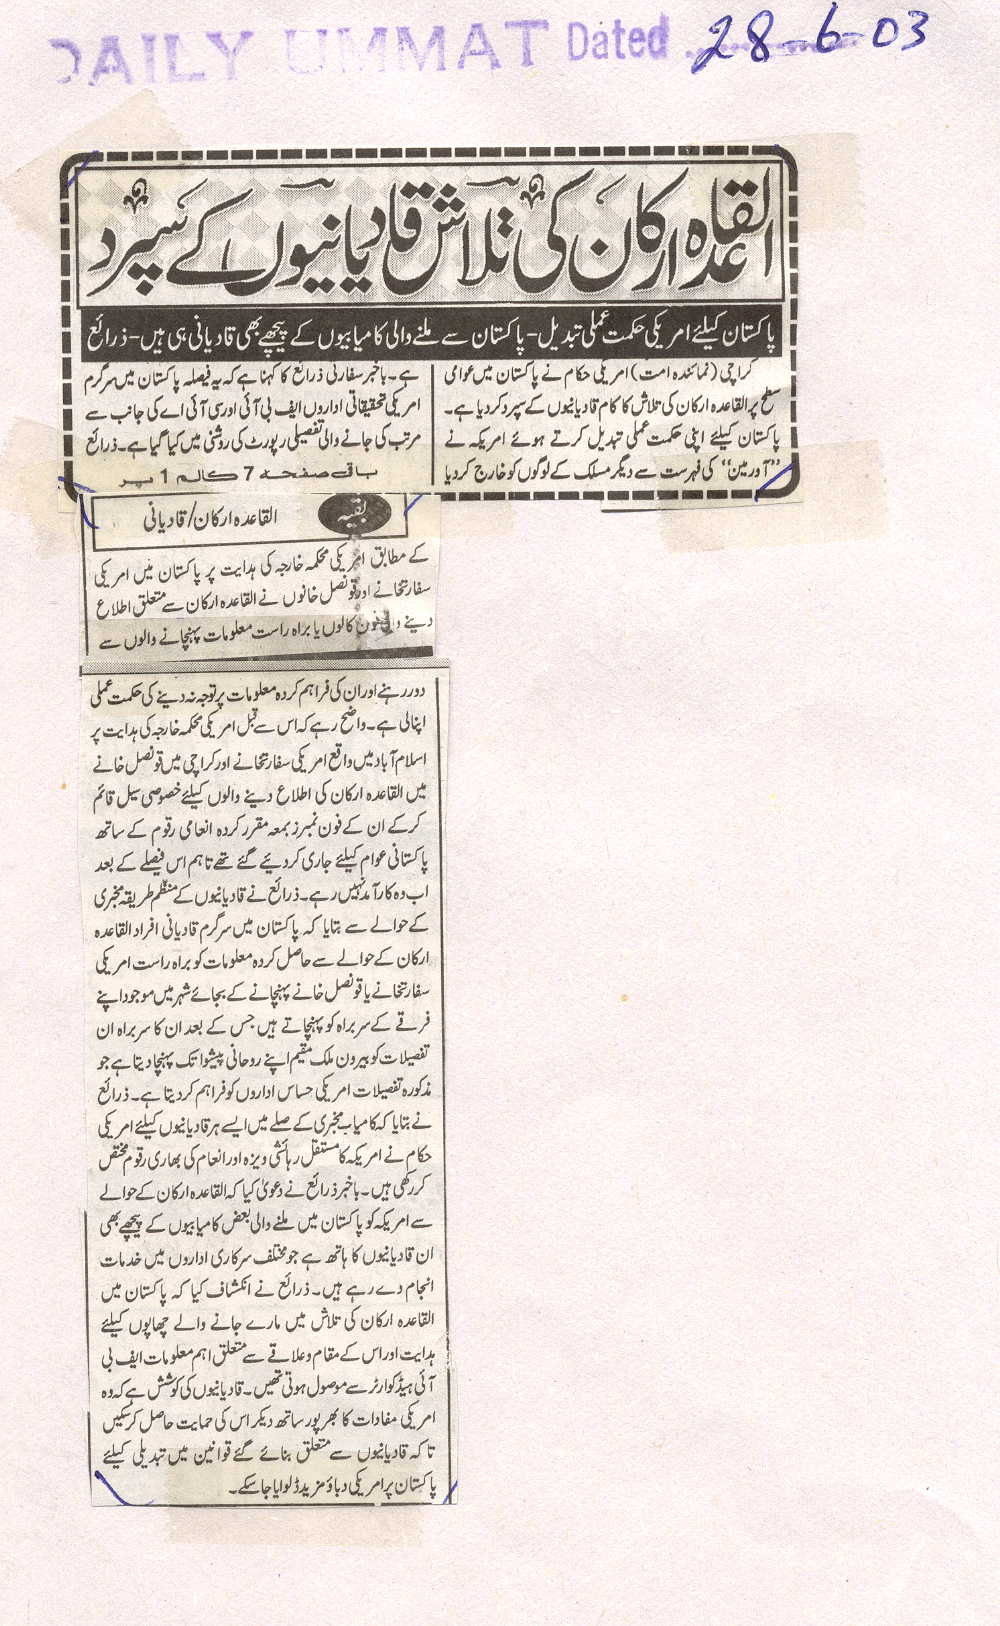 DAILY UMMAT Dated 28-6-03
القاعدہ ارکان کی تلاش قادیانیوں کے سپرد
پاکستان کیلئے امریکی حکمت عملی تبدیل - پاکستان سے ملنے والی کامیابیوں کے پیچھے بھی قادیانی ہی ہیں - ذرائع
کراچی (نمائندہ امت) امریکی حکام نے پاکستان میں عوامی
سطح پر القاعدہ ارکان کی تلاش کا کام قادیانیوں کے سپرد کر دیا ہے۔
پاکستان کیلئے اپنی حکمت عملی تبدیل کرتے ہوئے امریکہ نے
"آور مین" کی فہرست سے دیگر مسلک کے لوگوں کو خارج کر دیا
ہے۔ باخبر سفارتی ذرائع کا کہنا ہے کہ یہ فیصلہ پاکستان میں سرگرم
امریکی تحقیقاتی اداروں ایف بی آئی اور سی آئی اے کی جانب سے
مرتب کی جانے والی تفصیلی رپورٹ کی روشنی میں کیا گیا ہے۔ ذرائع
باقی صفحہ 7 کالم 1 پر
بقیہ القاعدہ ارکان/قادیانی
کے مطابق امریکی محکمہ خارجہ کی ہدایت پر پاکستان میں امریکی
سفارتخانے اور قونصل خانوں نے القاعدہ ارکان سے متعلق اطلاع
دینے والی فون کالوں یا براہ راست معلومات پہنچانے والوں سے
دور رہنے اور ان کی فراہم کردہ معلومات پر توجہ نہ دینے کی حکمت عملی
اپنالی ہے۔ واضح رہے کہ اس سے قبل امریکی محکمہ خارجہ کی ہدایت پر
اسلام آباد میں واقع امریکی سفارتخانے اور کراچی میں قونصل خانے
میں القاعدہ ارکان کی اطلاع دینے والوں کیلئے خصوصی سیل قائم
کر کے ان کے فون نمبرز بمعہ مقرر کردہ انعامی رقوم کے ساتھ
پاکستانی عوام کیلئے جاری کر دیئے گئے تھے تاہم اس فیصلے کے بعد
اب وہ کارآمد نہیں رہے۔ ذرائع نے قادیانیوں کے منظم طریقہ مخبری
کے حوالے سے بتایا کہ پاکستان میں سرگرم قادیانی افراد القاعدہ
ارکان کے حوالے سے حاصل کردہ معلومات کو براہ راست امریکی
سفارتخانے یا قونصل خانے پہنچانے کے بجائے شہر میں موجود اپنے
فرقے کے سربراہ کو پہنچاتے ہیں جس کے بعد ان کا سربراہ ان
تفصیلات کو بیرون ملک مقیم اپنے روحانی پیشوا تک پہنچا دیتا ہے جو
مذکورہ تفصیلات امریکی حساس اداروں کو فراہم کر دیتا ہے۔ ذرائع
نے بتایا کہ کامیاب مخبری کے صلے میں ایسے ہر قادیانیوں کیلئے امریکی
حکام نے امریکہ کا مستقل رہائشی ویزہ اور انعام کی بھاری رقوم مختص
کر رکھی ہیں۔ باخبر ذرائع نے دعویٰ کیا کہ القاعدہ ارکان کے حوالے
سے امریکہ کو پاکستان میں ملنے والی بعض کامیابیوں کے پیچھے بھی
ان قادیانیوں کا ہاتھ ہے جو مختلف سرکاری اداروں میں خدمات
انجام دے رہے ہیں۔ ذرائع نے انکشاف کیا کہ پاکستان میں
القاعدہ ارکان کی تلاش میں مارے جانے والے چھاپوں کیلئے
ہدایت اور اس کے مقام و علاقے سے متعلق اہم معلومات ایف بی
آئی ہیڈ کوارٹر سے موصول ہوتی تھیں۔ قادیانیوں کی کوشش ہے کہ وہ
امریکی مفادات کا بھرپور ساتھ دیکر اس کی حمایت حاصل کر سکیں
تا کہ قادیانیوں سے متعلق بنائے گئے قوانین میں تبدیلی کیلئے
پاکستان پر امریکی دباؤ مزید ڈلوایا جا سکے۔